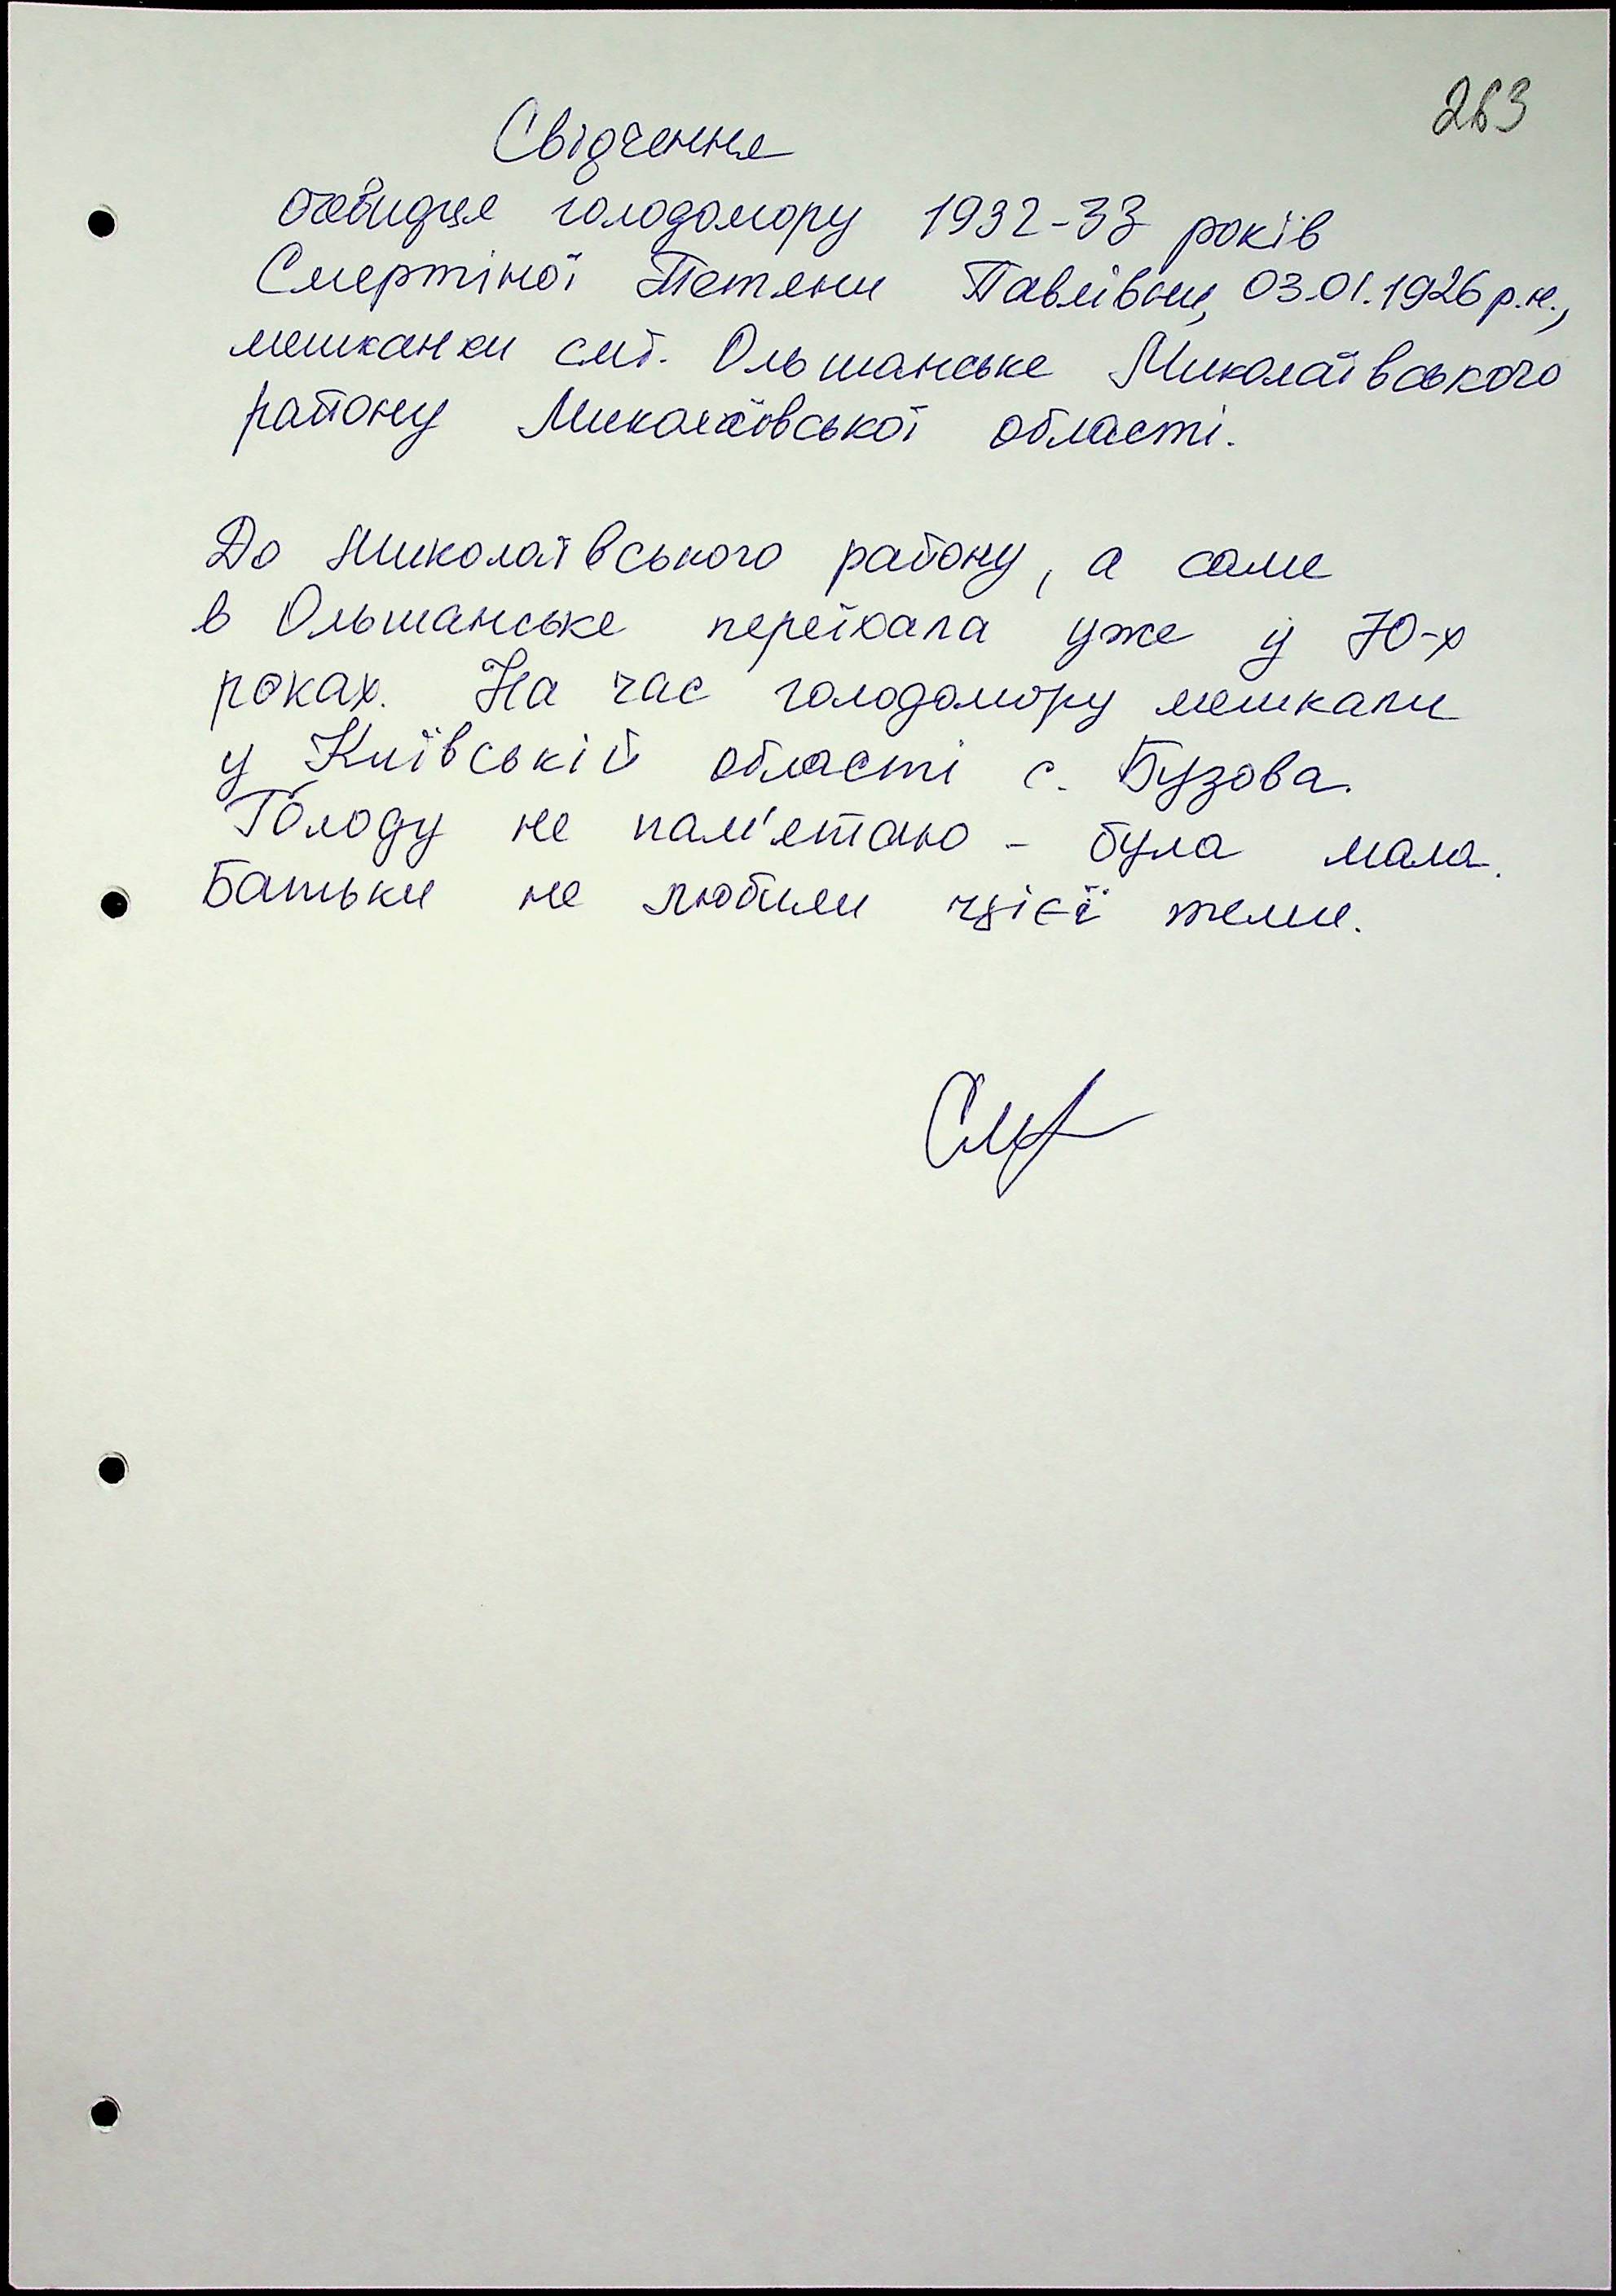 263
Свідчення
очевидця голодомору 1932-33 років
Смертіної Тетяни Павлівни, 03.01.1926 р.н.,
мешканки смт. Ольшанське Миколаївського
району Миколаївської області.
До Миколаївського району, а саме
в Ольшанське переїхала уже у 70-х
роках. На час голодомору мешкали
у Київській області с. Бузова.
Голоду не пам'ятаю - була мала.
Батьки не любили цієї теми.